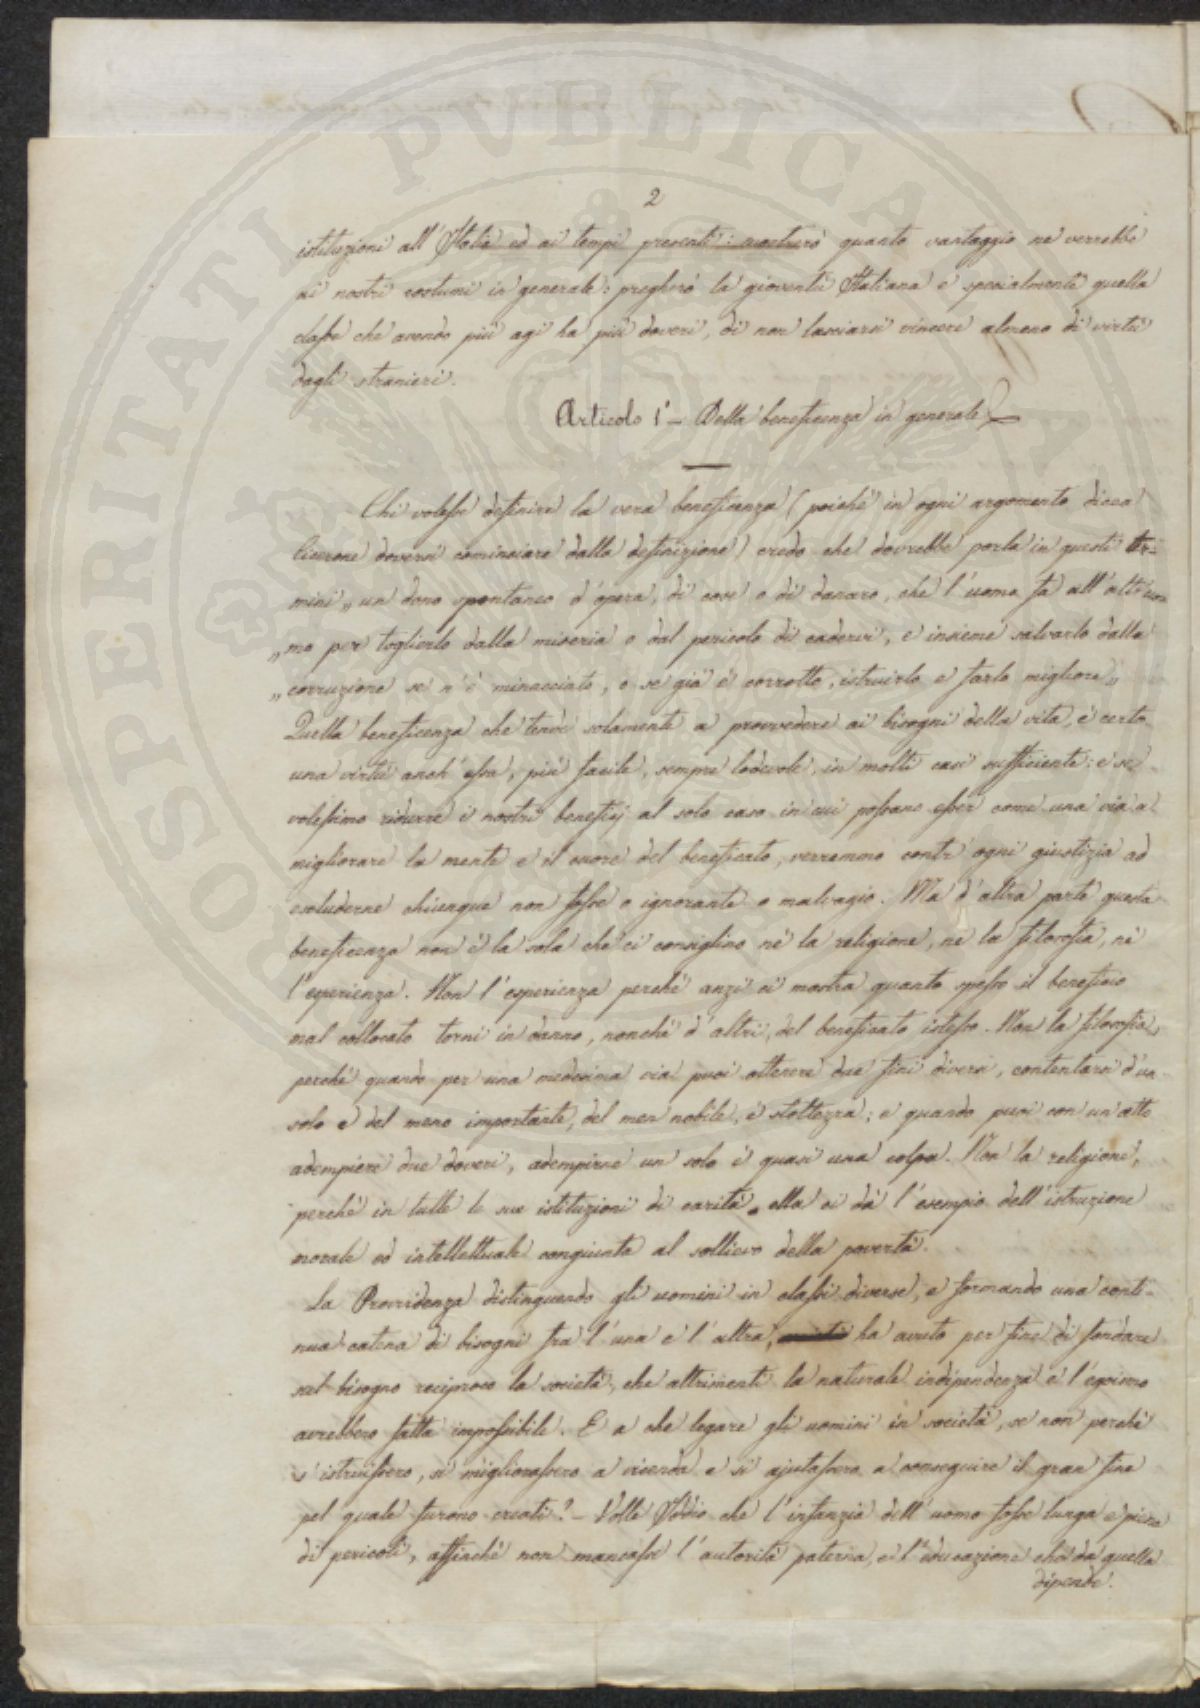 2
istituzioni all'Italia ed ai tempi presenti: mostrerò quanto vantaggio ne verrebbe
ai nostri costumi in generale: pregherò la gioventù Italiana e specialmente quella
classe che avendo più agi ha più doveri, di non lasciarsi vincere almeno di virtù
dagli stranieri.
Articolo 1° – Della beneficenza in generale
Chi volesse definire la vera beneficenza (poichè in ogni argomento dicea
Cicerone doversi cominciare dalla definizione) credo che dovrebbe porla in questi ter-
mini „ un dono spontaneo d'opera, di cose o di danaro, che l'uomo fa all'altr'uo-
„ mo per toglierlo dalla miseria o dal pericolo di cadervi, e insieme salvarlo dalla
„ corruzione se n'è minacciato, o se già è corrotto, istruirlo e farlo migliore „
Quella beneficenza che tende solamente a provvedere ai bisogni della vita, è certo
una virtù anch'essa, più facile, sempre lodevole, in molti casi sufficiente: e se
volessimo ridurre i nostri beneficj al solo caso in cui possano esser come una via a
migliorare la mente e il cuore del beneficato, verremmo contr'ogni giustizia ad
escluderne chiunque non fosse o ignorante o malvagio. Ma d'altra parte questa
beneficenza non è la sola che ci consiglino nè la religione, nè la filosofia, nè
l'esperienza. Non l'esperienza perchè anzi ci mostra quanto spesso il beneficio
mal collocato torni in danno, nonchè d'altri, del beneficato istesso. Non la filosofia,
perchè quando per una medesima via puoi ottenere due fini diversi, contentarsi d'un
solo e del meno importante, del men nobile, è stoltezza; e quando puoi con un atto
adempiere due doveri, adempirne un solo è quasi una colpa. Non la religione,
perchè in tutte le sue istituzioni di carità ella ci dà l'esempio dell'istruzione
morale ed intellettuale congiunta al sollievo della povertà.
La Provvidenza distinguendo gli uomini in classi diverse, e formando una conti-
nua catena di bisogni fra l'una e l'altra, ha avuto per fine di fondare
sul bisogno reciproco la società, che altrimenti la naturale indipendenza e l'egoismo
avrebbero fatta impossibile. E a che legare gli uomini in società, se non perchè
s'istruissero, si migliorassero a vicenda e si ajutassero a conseguire il gran fine
pel quale furono creati? – Volle Iddio che l'infanzia dell'uomo fosse lunga e piena
di pericoli, affinchè non mancasse l'autorità paterna, e l'educazione che da quella
dipende.